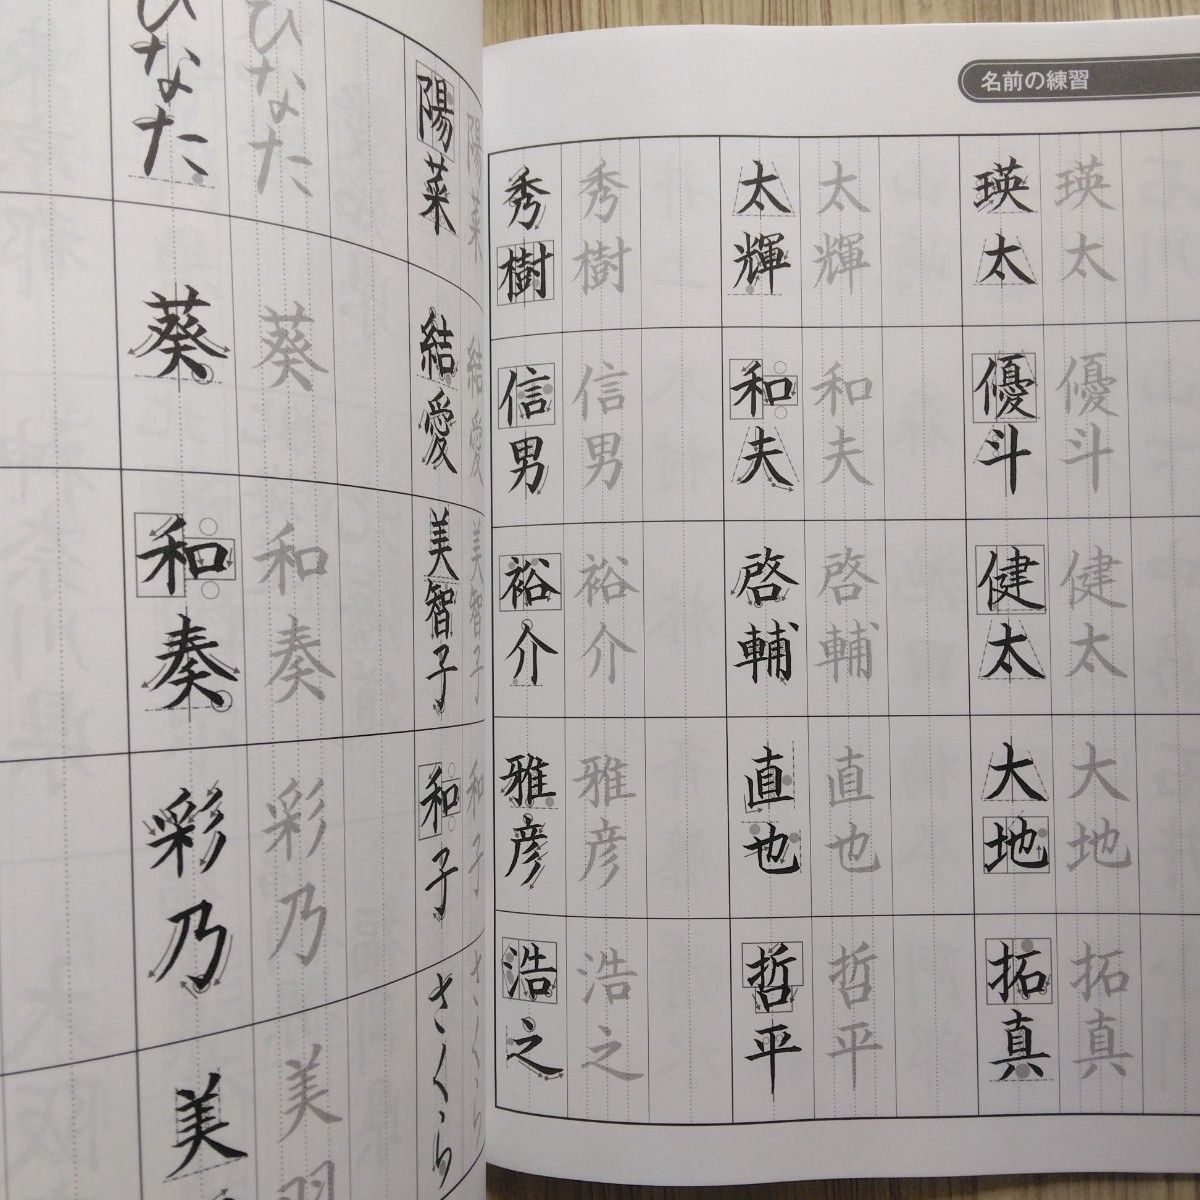 名前の練習
瑛太 瑛太
優斗 優斗
健太 健太
大地 大地
拓真 拓真
太輝 太輝
和夫 和夫
啓輔 啓輔
直也 直也
哲平 哲平
秀樹 秀樹
信男 信男
裕介 裕介
雅彦 雅彦
浩之 浩之
陽菜 陽菜
結愛 結愛
美智子 美智子
和子 和子
さくら さくら
ひなた ひなた
葵 葵
和奏 和奏
彩乃 彩乃
美 美羽